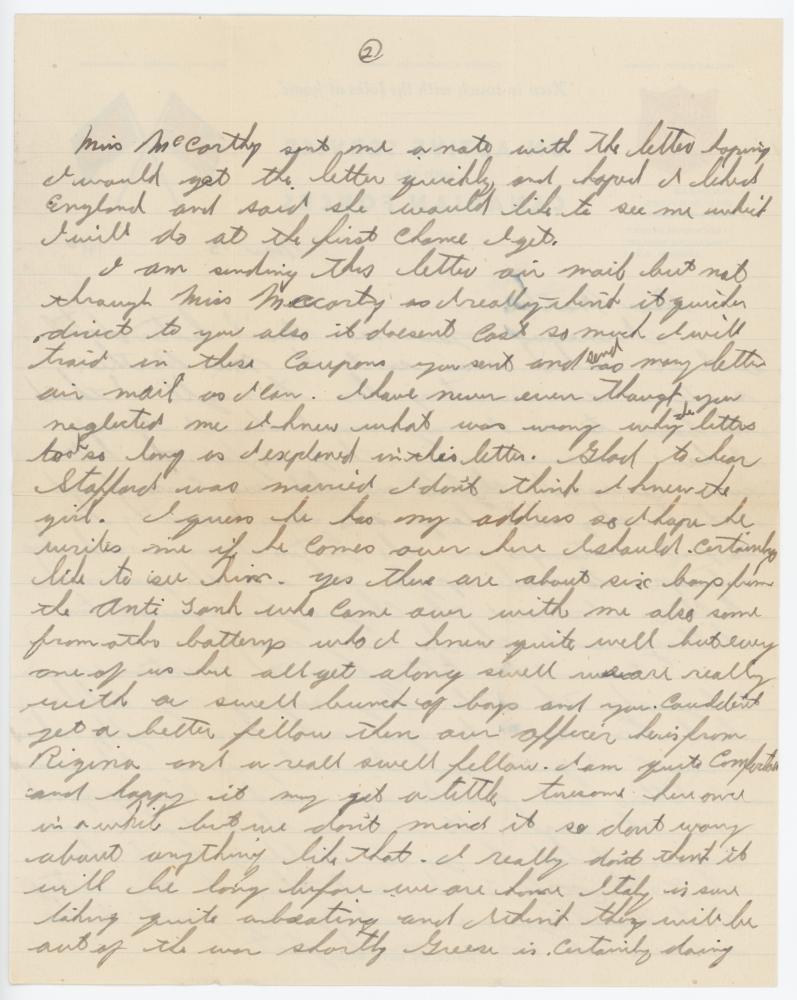 2
Miss McCarthy sent me a note with the letter hoping
I would get the letter quickly and hoped I liked
England and said she would like to see me which
I will do at the first chance I get.
I am sending this letter air mail but not
through Miss Mccarty as I really think it quicker
direct to you also it doesent cost so much I will
traid in these Coupons you sent and send as many letter
air mail as I can. I have never even thought you
neglected me I knew what was wrong why the letters
took so long as I explaned in this letter. Glad to hear
Stafford was married I don't think I knew the
girl. I guess he has my address so I hope he
writes me if he comes over here I should. Certainly
like to see him. yes there are about six boys from
the Anti Tank who came over with me also some
from other batterys who I knew quite well but every
one of us here all get along swell we are really
with a swell bunch of boys and you. Couldent
get a better fellow then our officer he is from
Rigina and a reall swell fellow. I am quite Comfortable
and happy it my get a little tiresome here once
in a while but we don't mind it so dont worry
about anything like that. I really don't think it
will be long before we are home Italy is sure
taking quite a beating and I think they will be
out of the war shortly Greese is. Certainly doing